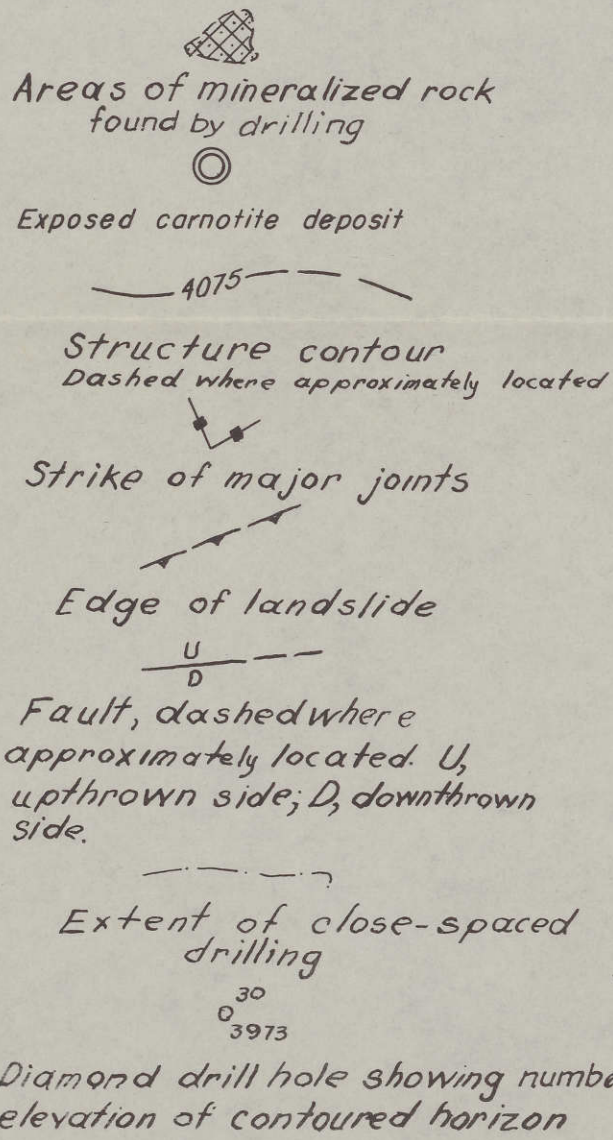 Areas of mineralized rock
found by drilling
Exposed carnotite deposit
4075
Structure contour
Dashed where approximately located
Strike of major joints
Edge of landslide
U
D
Fault, dashed where
approximately located. U,
upthrown side; D, downthrown
side.
Extent of close-spaced
drilling
30
3973
Diamond drill hole showing numbe
elevation of contoured horizon